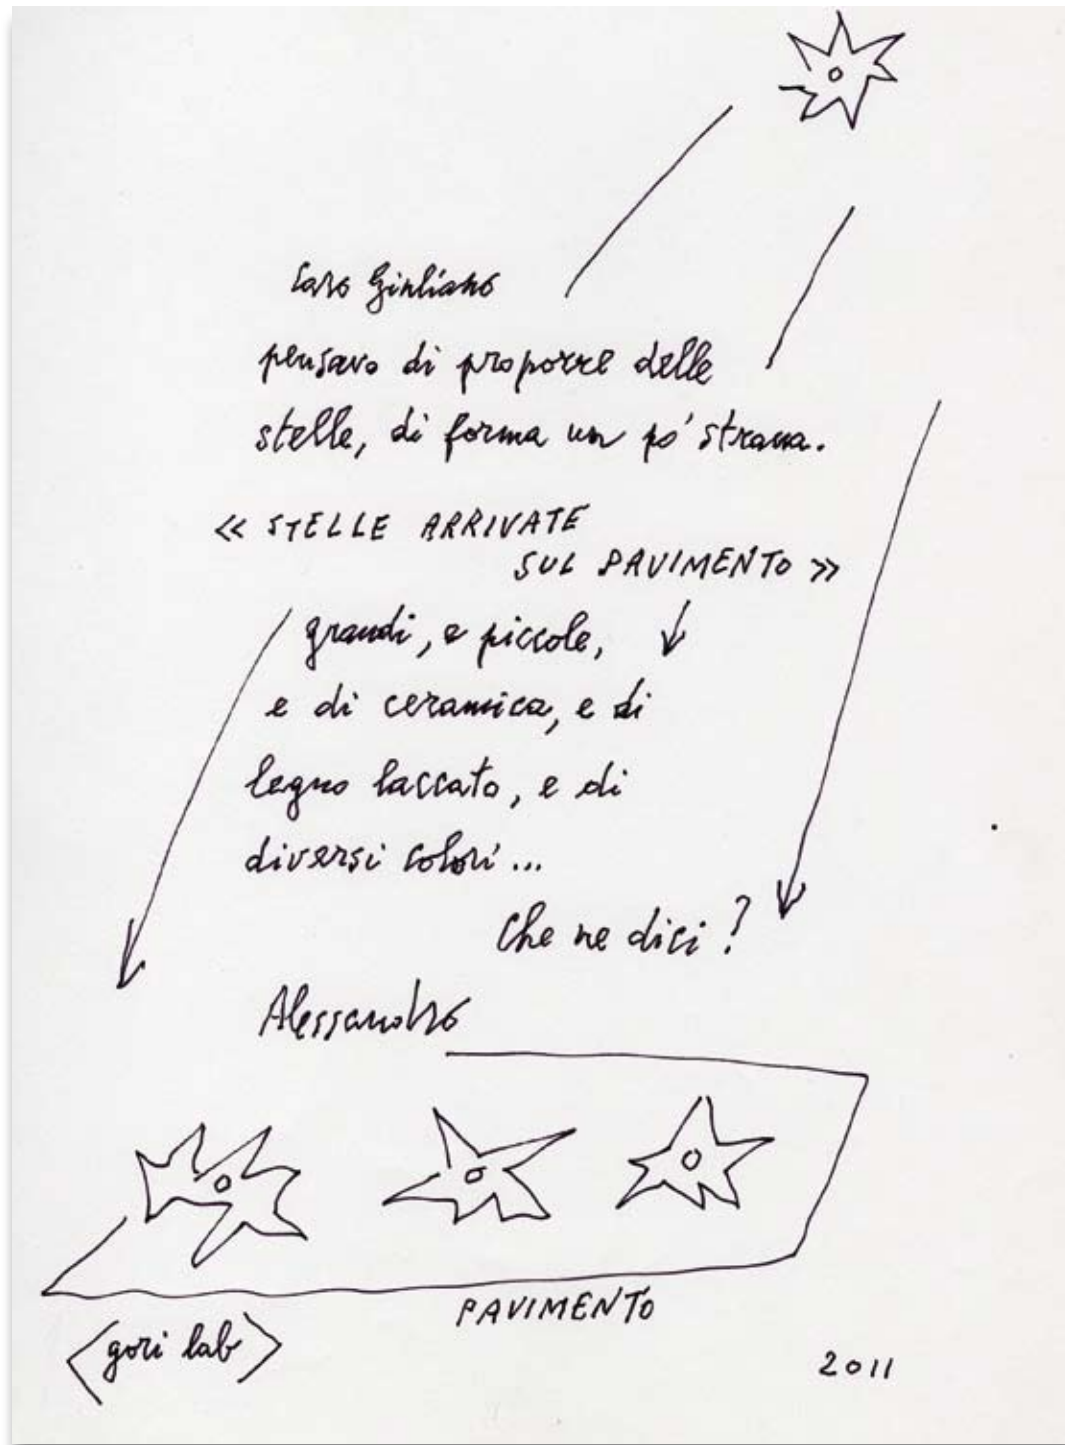 Caro Giuliano
pensavo di proporre delle
stelle, di forma un po' strana.
« STELLE ARRIVATE
SUL PAVIMENTO »
grandi, e piccole,
e di ceramica, e di
legno laccato, e di
diversi colori...
Che ne dici?
Alessandro
PAVIMENTO
<gori lab>
2011